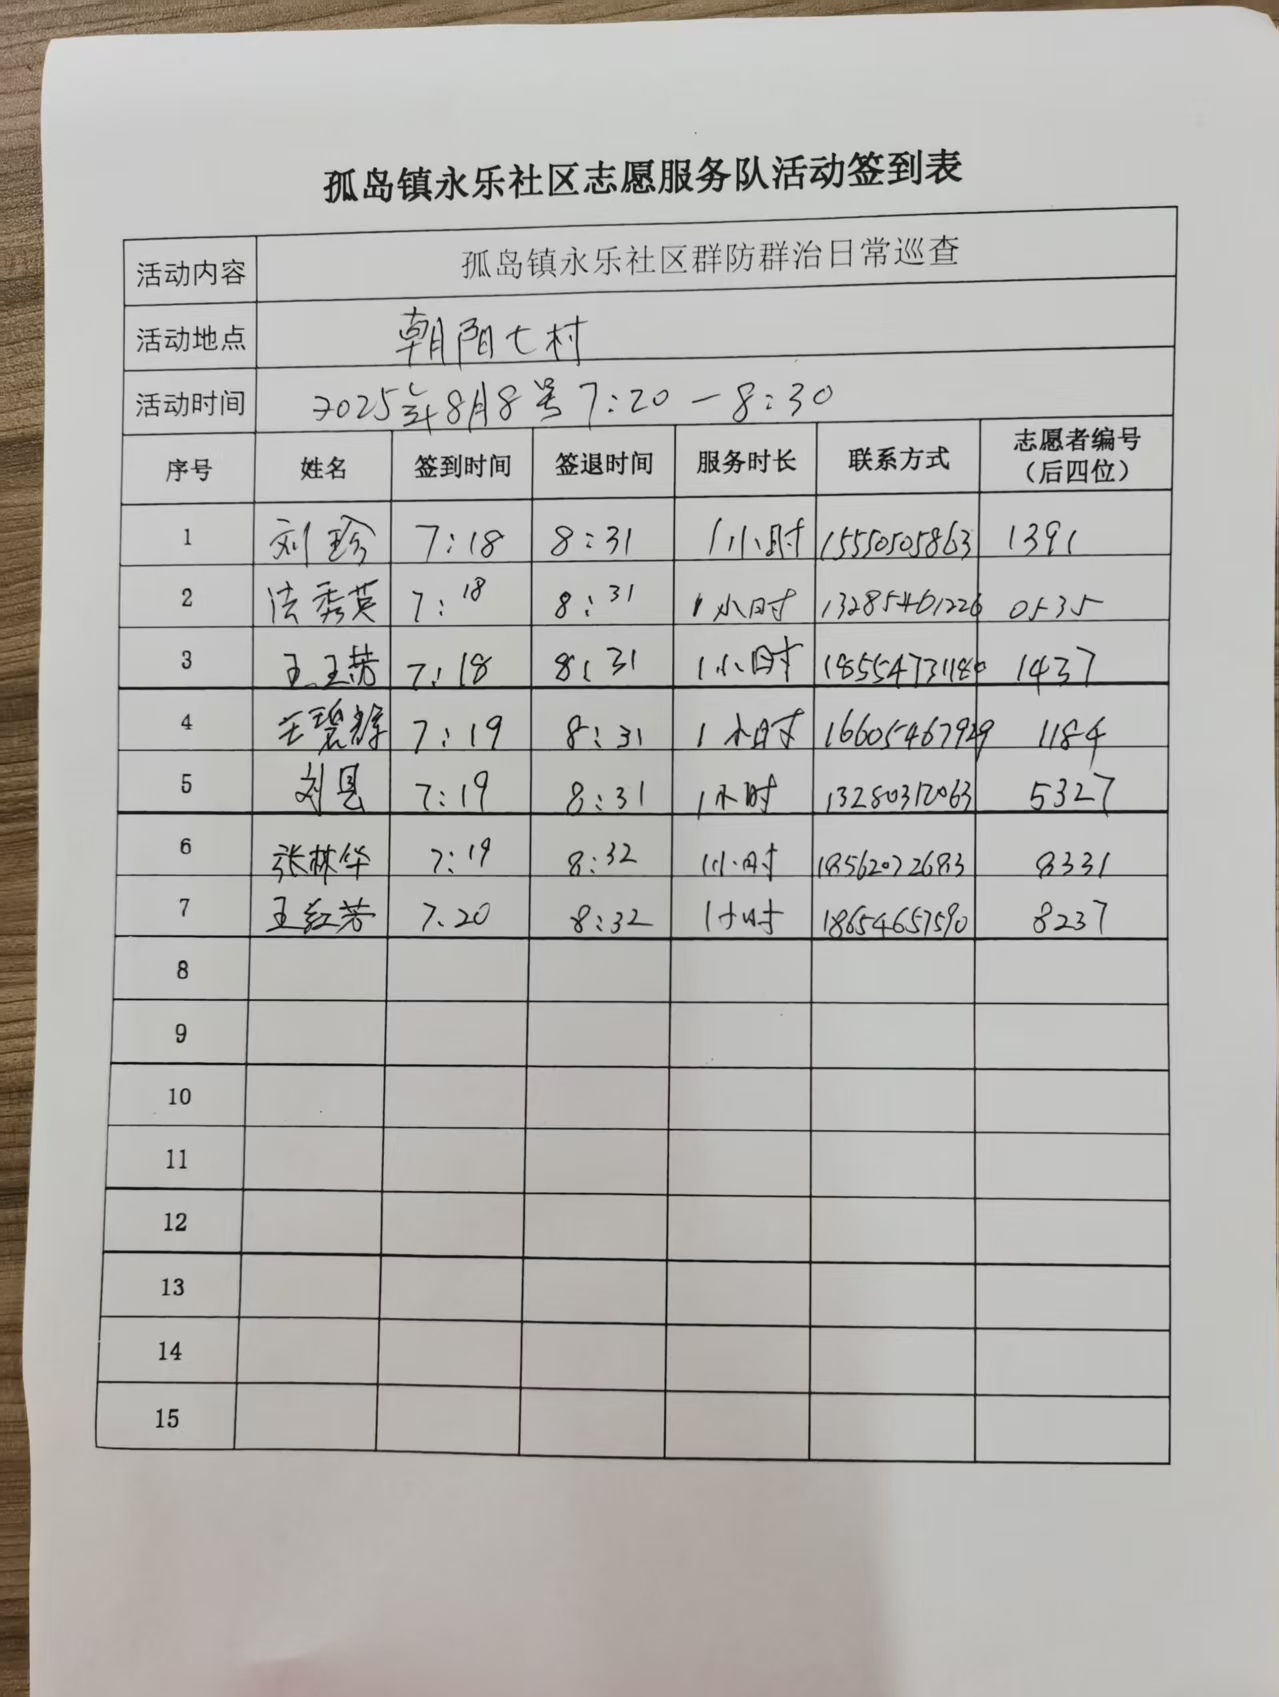 孤岛镇永乐社区志愿服务队活动签到表
活动内容 孤岛镇永乐社区群防群治日常巡查
活动地点 朝阳七村
活动时间 2025年8月8号7:20-8:30
序号 姓名 签到时间 签退时间 服务时长 联系方式 志愿者编号(后四位)
1 刘珍 7:18 8:31 1小时 15550505863 1391
2 秀英 7:18 8:31 1小时 13285461226 0535
3 王 7:18 8:31 1小时 18554731180 1437
4 7:19 8:31 1小时 16605467929 1184
5 刘恩 7:19 8:31 1小时 13280312063 5327
6 张林华 7:19 8:32 1小时 18562072683 8331
7 王红芳 7:20 8:32 1小时 18654657590 8237
8
9
10
11
12
13
14
15